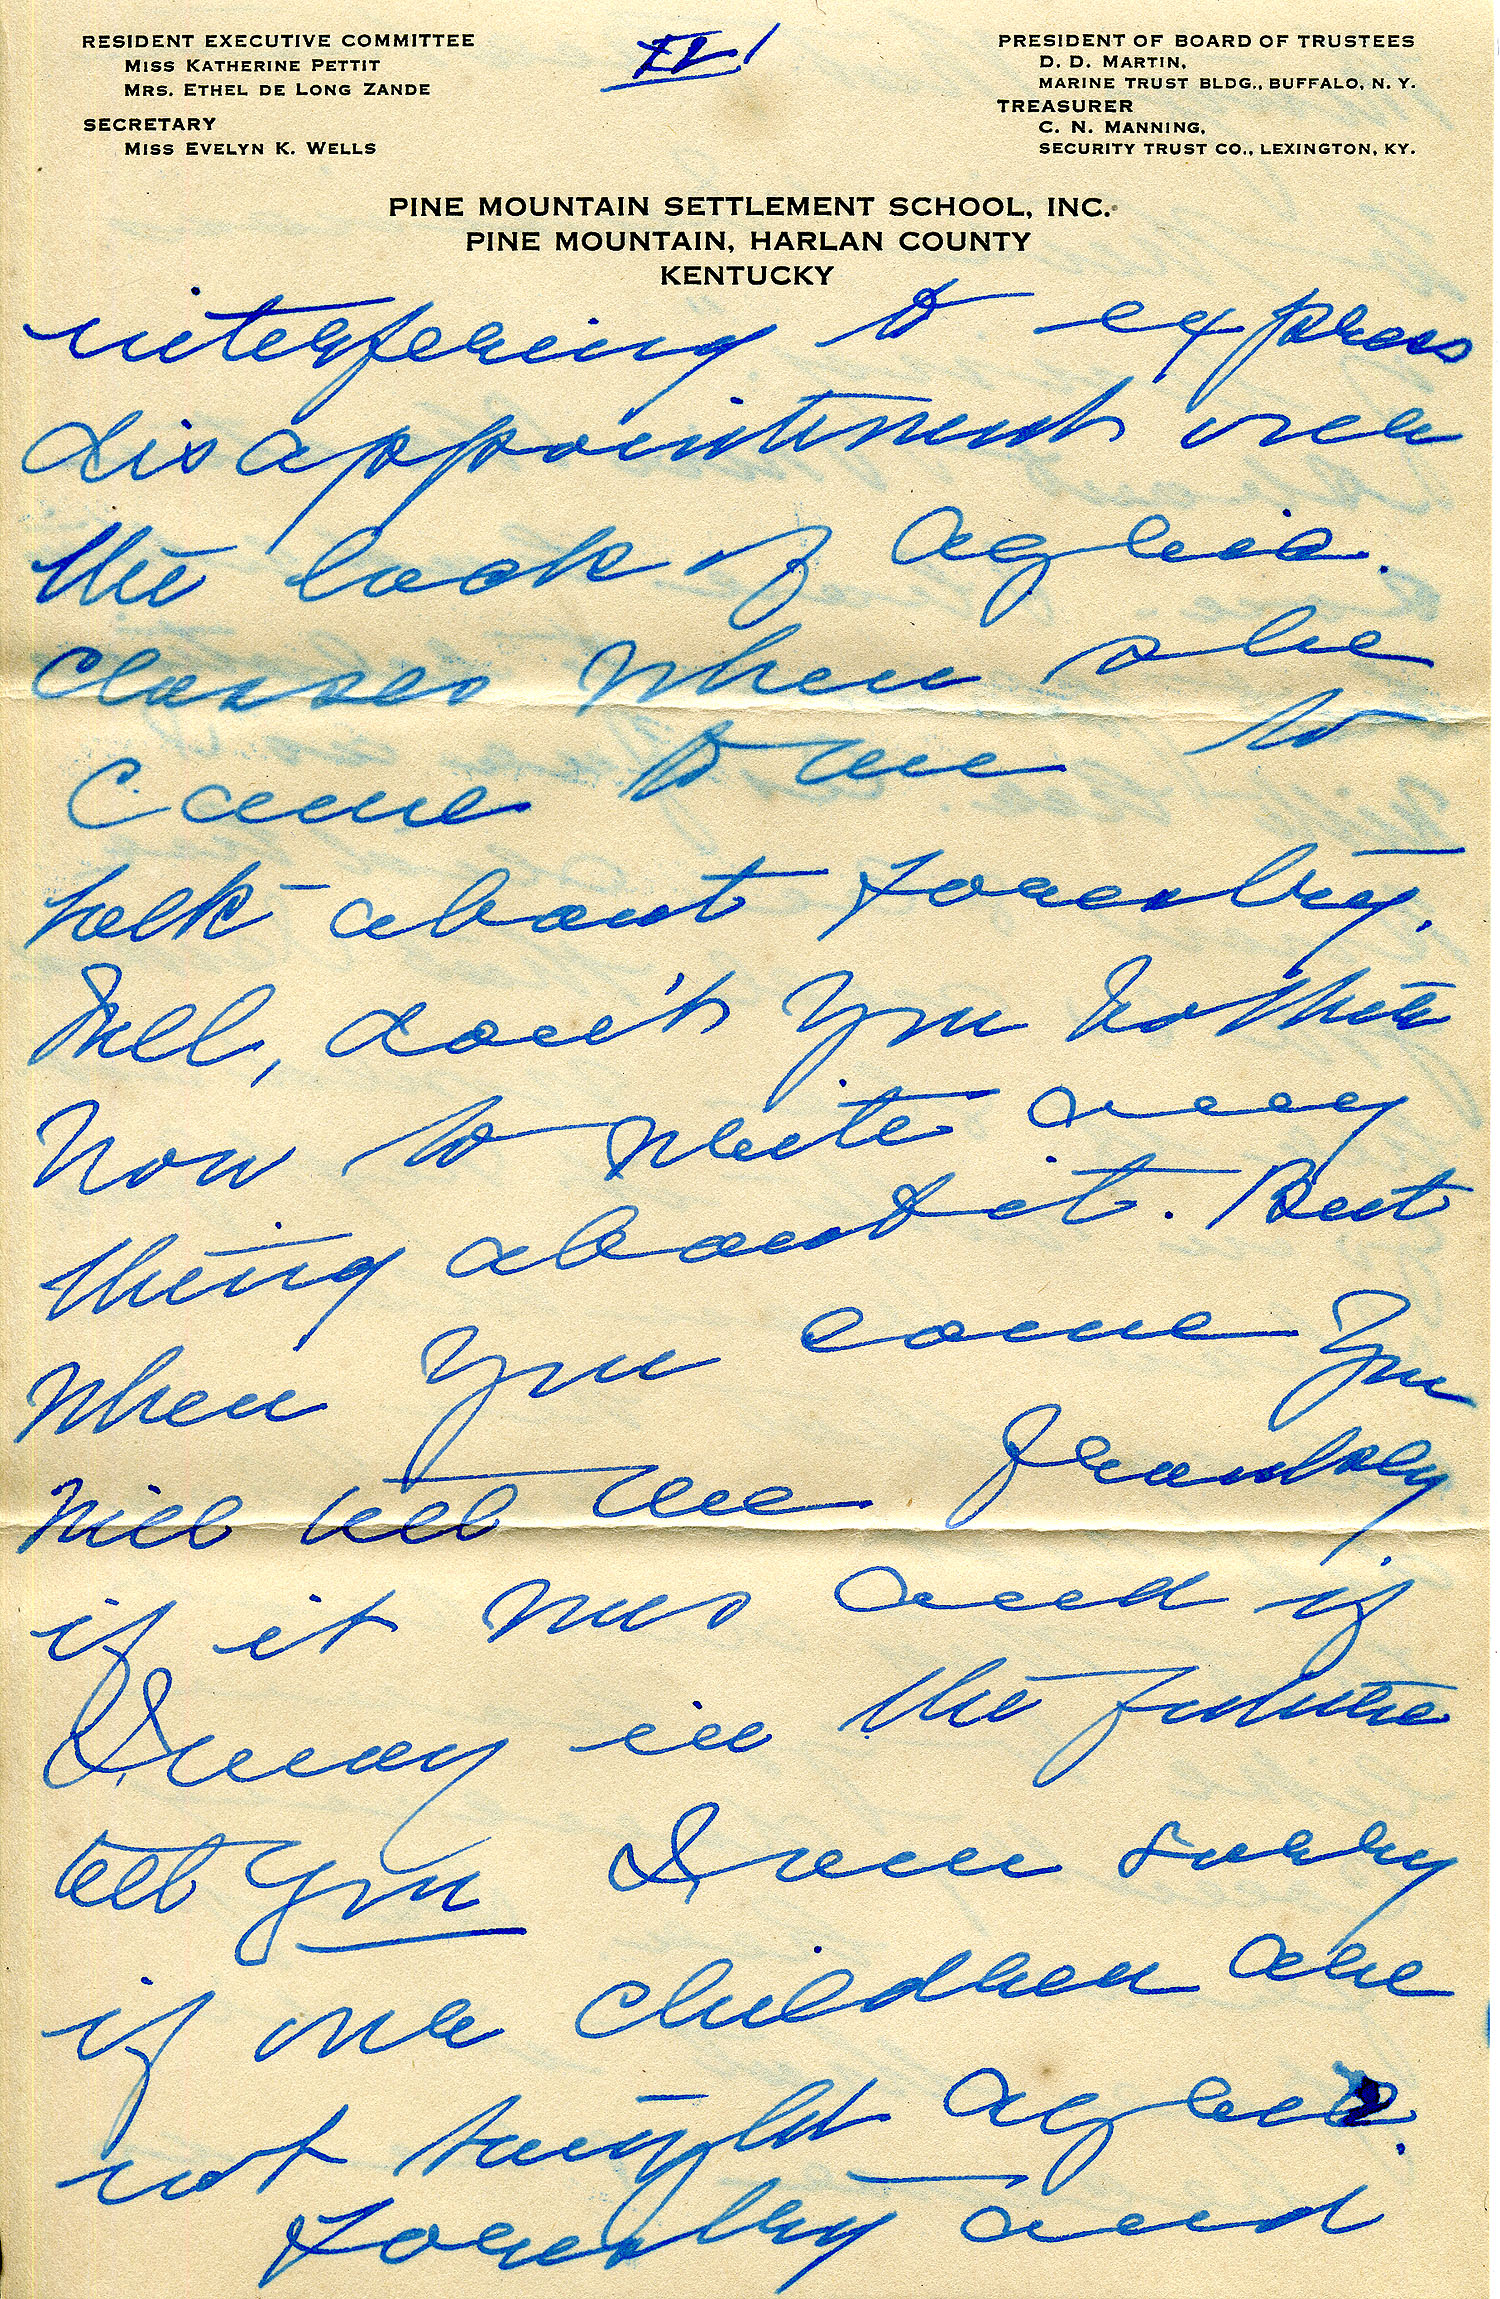 RESIDENT EXECUTIVE COMMITTEE
MISS KATHERINE PETTIT
MRS. ETHEL DE LONG ZANDE
SECRETARY
MISS EVELYN K. WELLS
PRESIDENT OF BOARD OF TRUSTEES
D. D. MARTIN,
MARINE TRUST BLDG., BUFFALO, N. Y.
TREASURER
C. N. MANNING,
SECURITY TRUST CO., LEXINGTON, KY.
PINE MOUNTAIN SETTLEMENT SCHOOL, INC.
PINE MOUNTAIN, HARLAN COUNTY
KENTUCKY
interfering to express
disappointment over
the lack of agric.
classes when she
came to me to
talk about forestry.
Well, don't you bother
now to write any
thing about it. But
when you come you
will tell me frankly
if it was and if
I may in the future
tell you I am sorry
if our children are
not taught agric.
forestry and